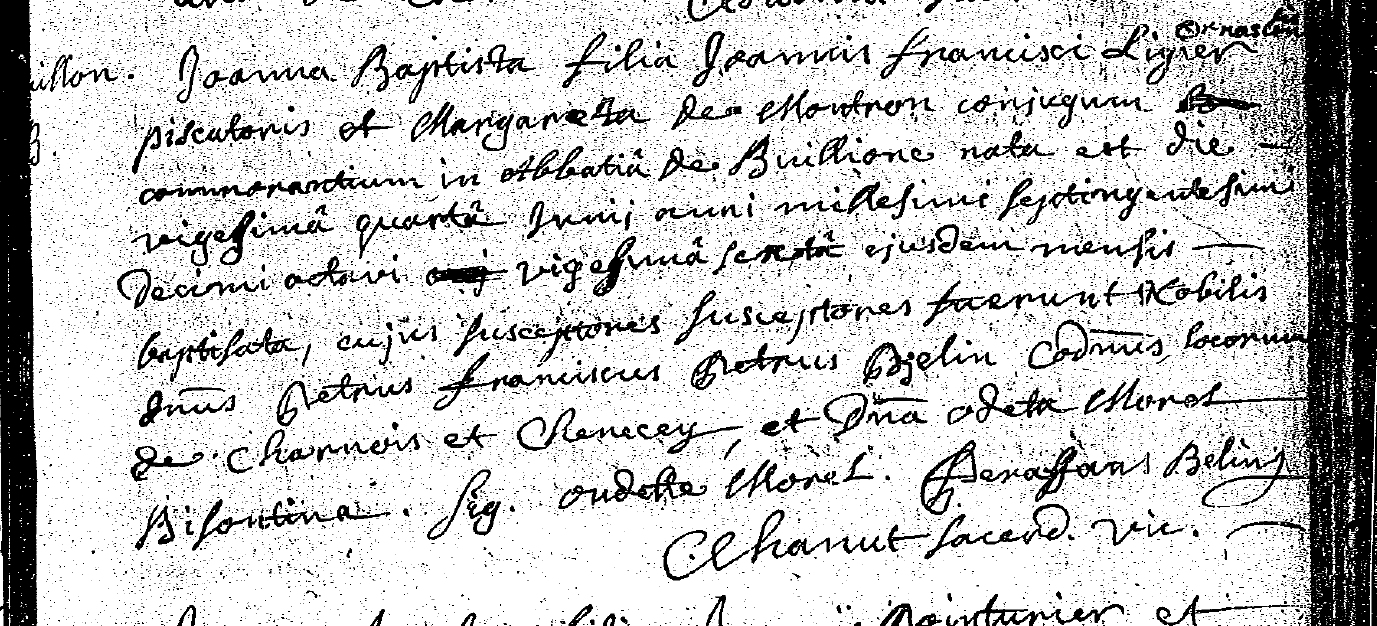 uillon. Joanna Baptista filia Joannis Francisci Ligier
piscatoris et Margareta de Montron conjugum
B. commorantium in Abbatiâ de Buillione nata est die
vigesimâ quartâ Junij anni millesimi septingentesimi
Decimi octavi vigesimâ sextâ ejusdem mensis
baptisata, cujus susceptores susceptores fuerunt Nobilis
dnus Petrus Franciscus Petrus Belin Codnus locorum
de Charnois et Chenecey, et Dna odeta Morel
Bisontina. sig. oudette Morel. Belin
Chanut sacerd. vic.
Pointurier et